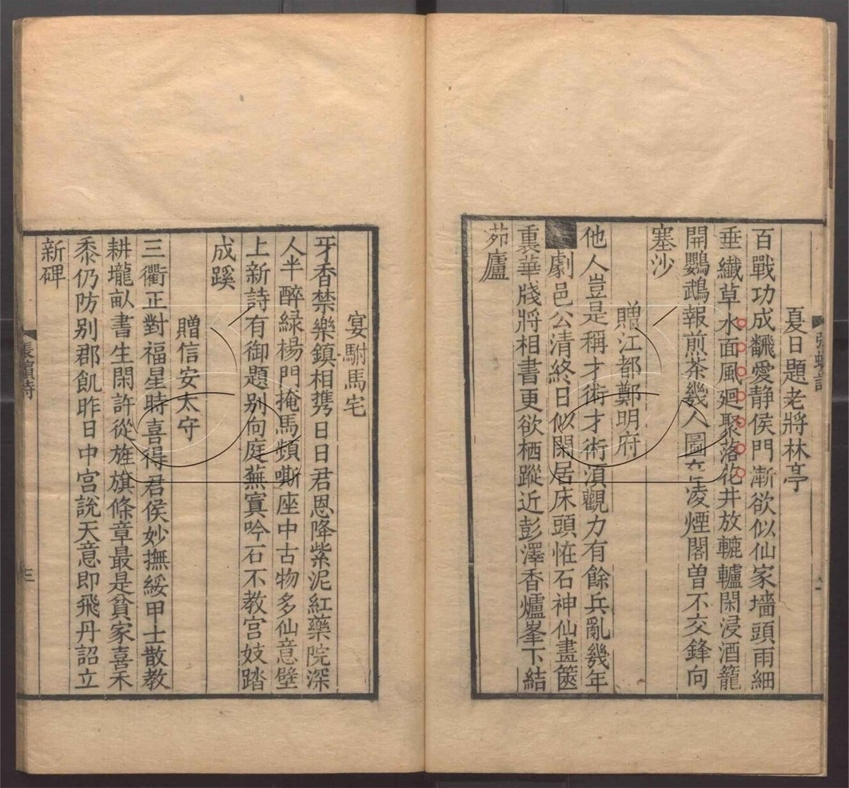 夏日題老將林亭
百戰功成飜愛静侯門漸欲似仙家墻頭雨細
垂纎草水面風廻聚落花井放轆轤閑浸酒籠
開鸚鵡報煎茶幾人圖在凌煙閣曽不交鋒向
塞沙
贈江都鄭明府
他人豈是稱才術才術湏觀力有餘兵亂幾年
劇邑公清終日似閑居床頭恠石神仙畫篋
裏華牋將相書更欲栖蹤近彭澤香爐峯下結
茆廬
宴駙馬宅
牙香禁樂鎮相擕日日君恩降紫泥紅藥院深
人半醉緑楊門掩馬頻嘶座中古物多仙意壁
上新詩有御題别向庭蕪寘吟石不教宫妓踏
成蹊
贈信安太守
三衢正對福星時喜得君侯妙撫綏甲士散教
耕壠畒書生閑許從旌旗條章最是貧家喜禾
黍仍防别郡飢昨日中宫說天意即飛丹詔立
新碑
張蠙詩
三